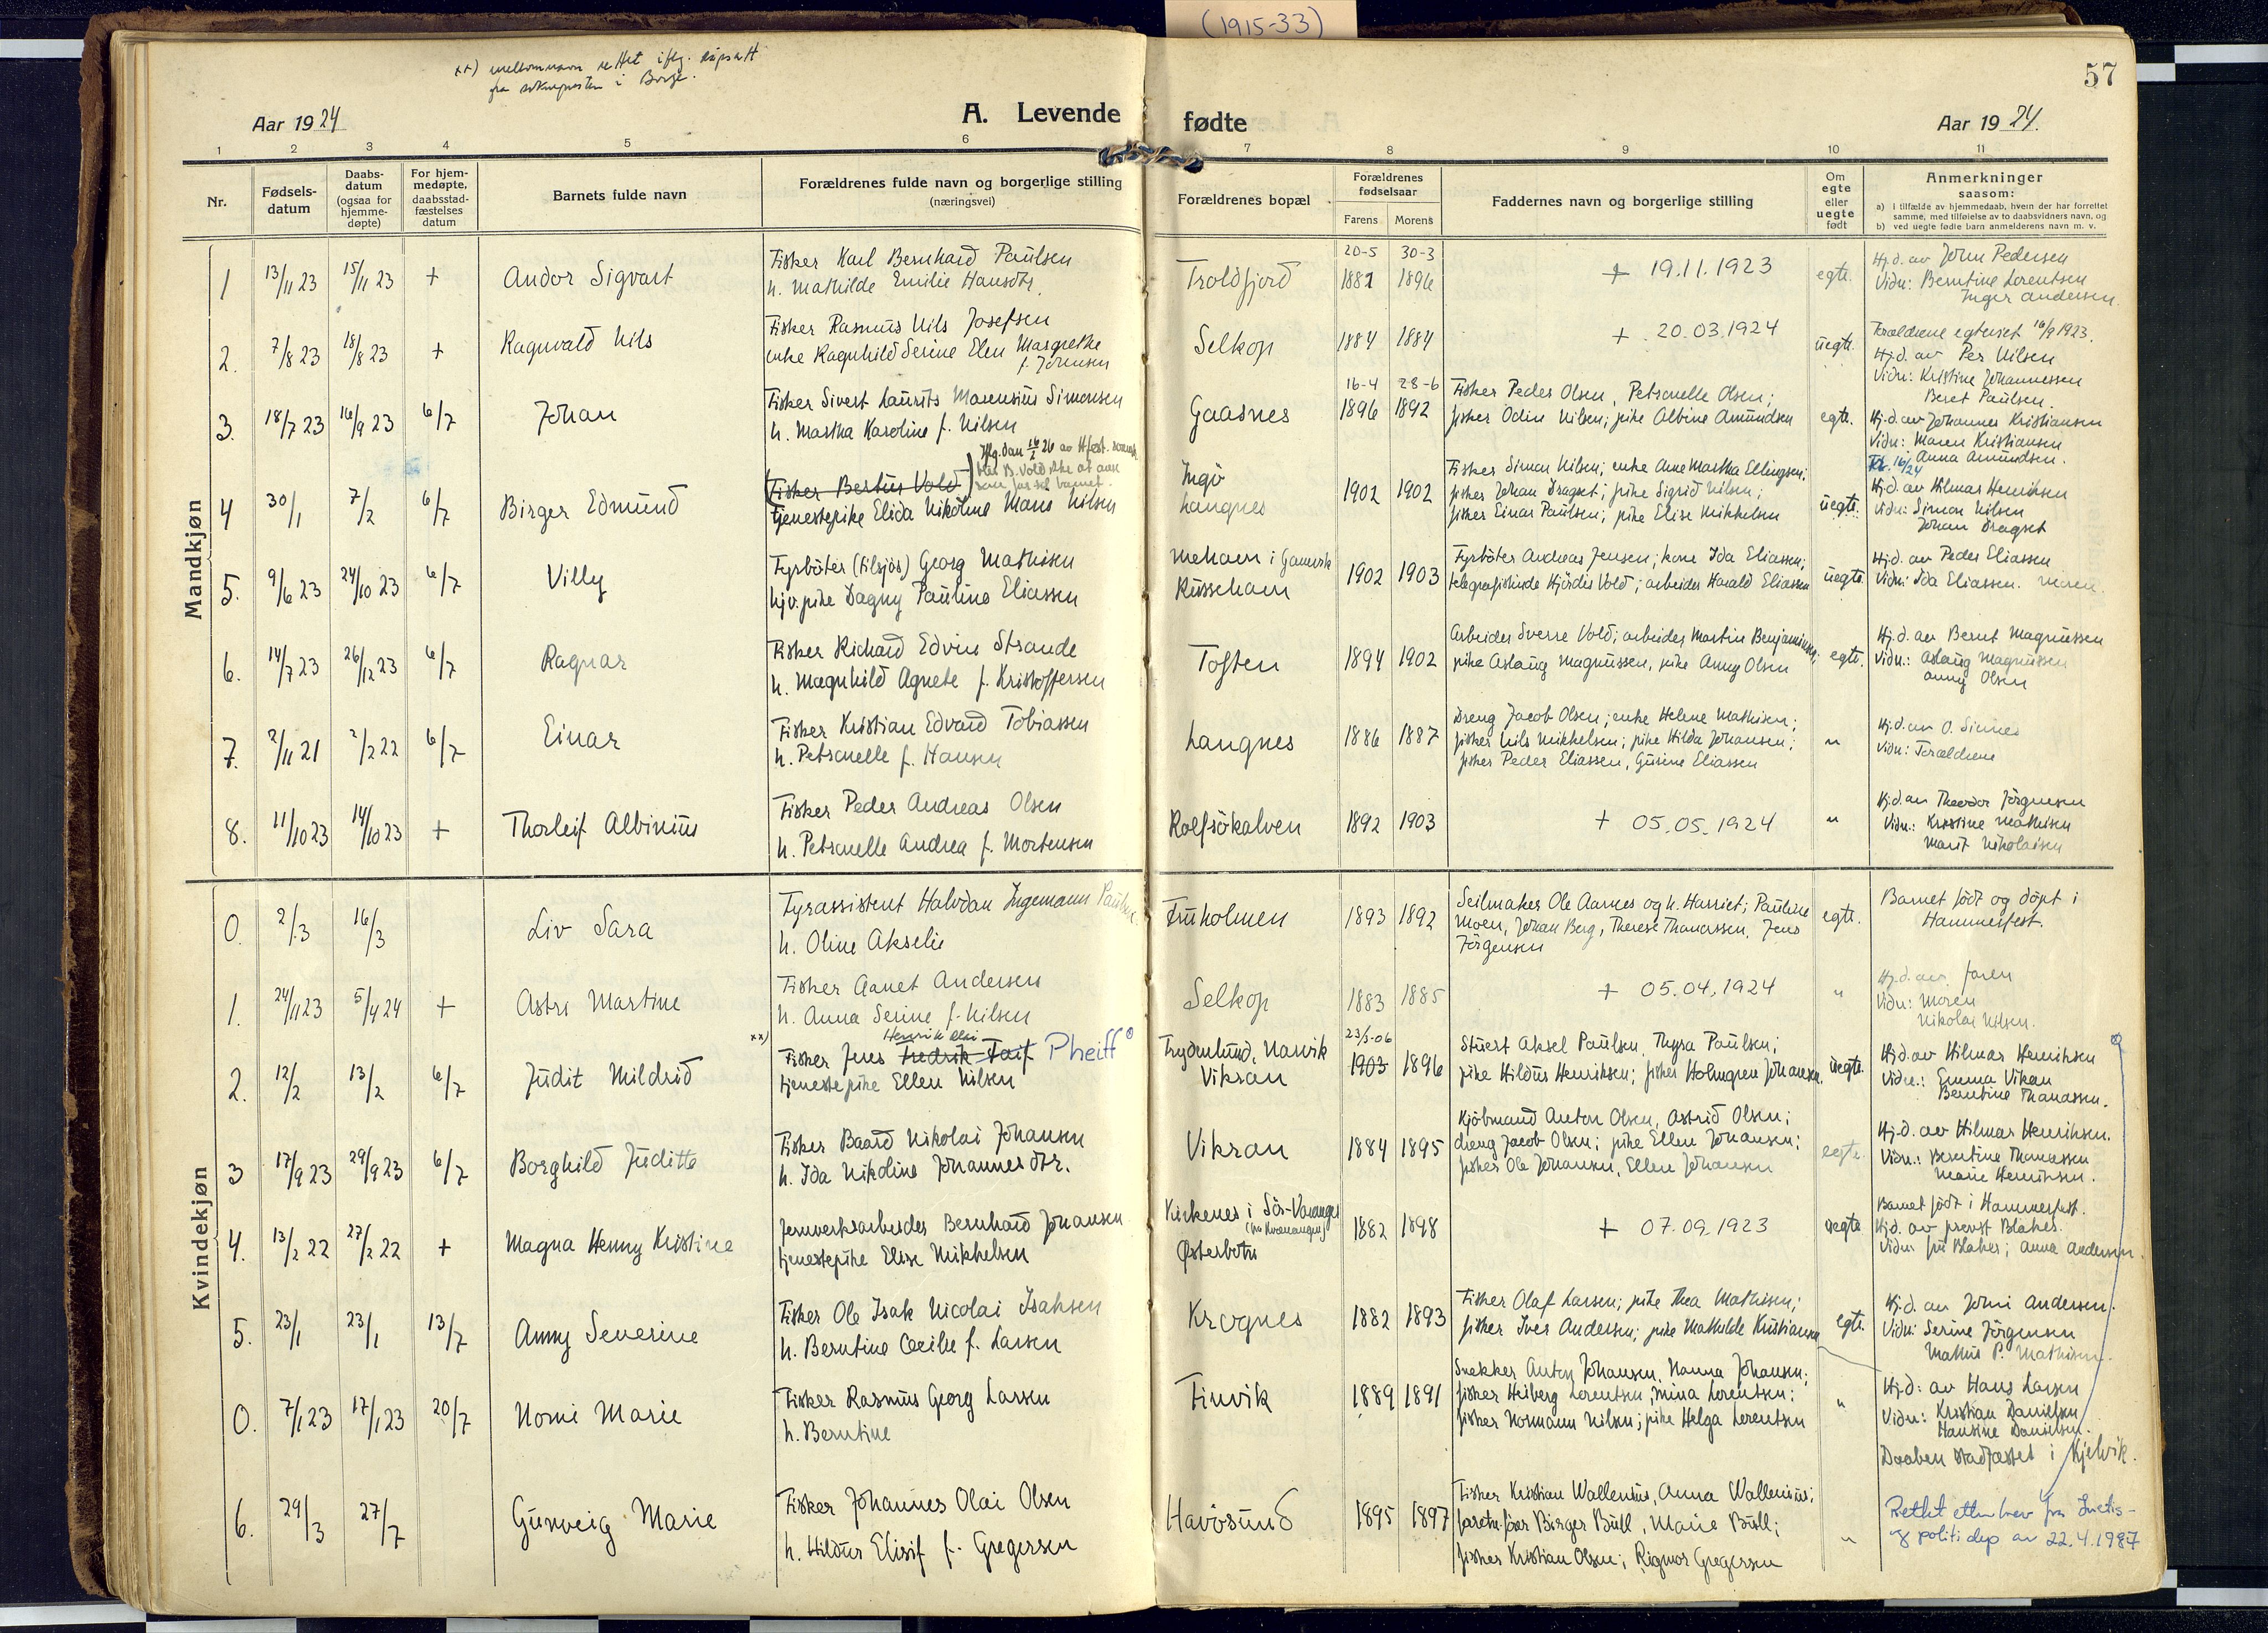 (1915-33)
57
××) mellomnavn rettet iflg. dåpsatt
fra soknepresten i Borge.
Aar 1924
A. Levende fødte
Aar 1924.
1 2 3 4 5 6 7 8 9 10 11
Nr.
Fødsels-
datum
Daabs-
datum
(ogsaa for
hjemme-
døpte)
For hjem-
medøpte,
daabsstad-
fæstelses
datum
Barnets fulde navn
Forældrenes fulde navn og borgerlige stilling
(næringsvei)
Forældrenes bopæl
Forældrenes
fødselsaar
Farens Morens
Faddernes navn og borgerlige stilling
Om
egte
eller
uegte
født
Anmerkninger
saasom:
a) i tilfælde av hjemmedaab, hvem der har forrettet
samme, med tilføielse av to daabsvidners navn, og
b) ved uegte fødte barn anmelderens navn m. v.
Mandkjøn
1 13/11 23 15/11 23 + Andor Sigvart
Fisker Karl Bernhard Paulsen
h. Mathilde Emilie Hansdtr.
Troldfjord
20-5 30-3
1881 1896
+ 19.11.1923
egte.
Hj.d. av John Pedersen
Vidn: Berntine Lorentsen
Inger Andersen.
2. 7/8 23 18/8 23 + Ragnvald Nils
Fisker Rasmus Nils Josefsen
enke Ragnhild Serine Elen Margrethe
f. Johnsen
Selkop
1884 1884
+ 20.03.1924
uegte.
Forældrene egteviet 16/9 1923.
Hj.d. av Per Nilsen
Vidn: Kristine Johannessen
Beret Paulsen.
3. 18/7 23 16/9 23 6/7 Johan
Fisker Sivert Laurits Marensius Simonsen
h. Martha Karoline f. Nilsen
Gaasnes
16-4 28-6
1896 1892
Fisker Peder Olsen, Petronelle Olsen;
fisker Odin Nilsen; pike Albine Amundsen
egte.
Hj.d. av Johannes Kristiansen
Vidn: Maren Kristiansen
Anna Amundsen.
4 30/1 7/2 6/7 Birger Edmund
Fisker Bertius Vold
tjenestepike Elida Nikoline Mans Nilsen
Ingö
Langnes
1902 1902
Fisker Simon Nilsen; enke Ane Martha Ellingsen;
fisker Johan Dragset; pike Sigrid Nilsen;
fisker Einar Paulsen; pike Elise Mikkelsen
uegte.
16/24
Hj.d. av Hilmar Henriksen
Vidn: Simon Nilsen
Johan Dragset
5. 9/6 23 24/10 23 6/7 Villy
Fyrböter (tilsjös) Georg Mathisen
hjv. pike Dagny Pauline Eliassen
Mehavn i Gamvik
Russehavn
1902 1903
Fyrböter Andreas Jensen; kone Ida Eliassen;
telegrafistinde Hjördis Vold; arbeider Harald Eliassen
uegte.
Hj.d. av Peder Eliassen
Vidn: Ida Eliassen. moren.
6. 14/7 23 26/12 23 6/7 Ragnar
Fisker Richard Edvin Strande
h. Magnhild Agnete f. Kristoffersen
Toften
1894 1902
Arbeider Sverre Vold; arbeider Martin Benjaminsen;
pike Aslaug Magnussen, pike Anny Olsen
egte.
Hj.d. av Bernt Magnussen
Vidn.: Aslaug Magnussen
Anny Olsen
7. 2/11 21 2/2 22 6/7 Einar
Fisker Kristian Edvard Tobiassen
h. Petronelle f. Hansen
Langnes
1886 1887
Dreng Jacob Olsen; enke Helene Mathisen;
fisker Nils Mikkelsen; pike Hilda Johansen;
fisker Peder Eliassen, Gurine Eliassen
"
Hj.d. av O. Simnes
Vidn: Forældrene
8. 11/10 23 14/10 23 + Thorleif Albinius
Fisker Peder Andreas Olsen
h. Petronelle Andrea f. Mortensen
Rolfsökalven
1892 1903
+ 05.05.1924
"
Hj.d. av Theodor Jörgensen
Vidn.: Kristine Mathisen
Marit Nikolaisen
Kvindekjøn
0. 2/3 16/3 Liv Sara
Fyrassistent Halvdan Ingemann Paulsen
h. Oline Akselie
Fruholmen
1893 1892
Seilmaker Ole Aarnes og h. Harriet; Pauline
Moen, Johan Berg, Therese Thomassen, Jens
Jörgensen
egte.
Barnet födt og döpt i
Hammerfest.
1. 24/11 23 5/4 24 + Astri Martine
Fisker Aanet Andersen
h. Anna Serine f. Nilsen
Selkop
1883 1885
+ 05.04.1924
"
Hj.d. av faren
Vidn: Moren
Nikolai Nilsen.
2. 12/2 13/2 6/7 Judit Mildrid
××) Henrik Olai
Fisker Jens Fredrik Faif Pheiff
tjenestepike Ellen Nilsen
Frydenlund, Narvik
Vikran
23/5-06
1903 1896
Stuert Aksel Paulsen, Thyra Paulsen;
pike Hildur Henriksen; fisker Holmgren Johansen.
uegte.
Hj.d. av Hilmar Henriksen
Vidn.: Emma Vikan
Berntine Thomassen.
3 17/9 23 29/9 23 6/7 Borghild Juditte
Fisker Baard Nikolai Johansen
h. Ida Nikoline Johannesdtr.
Vikran
1884 1895
Kjöbmand Anton Olsen, Astrid Olsen;
dreng Jacob Olsen; pike Ellen Johansen;
fisker Ole Johansen, Ellen Johansen
egte.
Hj.d. av Hilmar Henriksen.
Vidn.: Berntine Thomassen
Marie Henriksen.
4. 13/2 22 27/2 22 + Magna Henny Kristine
Jernverksarbeider Bernhard Johansen
tjenestepike Elise Mikkelsen
Kirkenes i Sör-Varanger
(fra Kvænangen)
Østerbotn
1882 1898
+ 07.09.1923
uegte
Barnet födt i Hammerfest.
Hj.d. av prevst Blaker.
Vidn: fru Blaker; Anna Andersen.
5. 23/1 23/1 13/7 Anny Severine
Fisker Ole Isak Nicolai Isaksen
h. Berntine Cecilie f. Larsen
Krognes
1882 1893
Fisker Olaf Larsen; pike Thea Mathisen;
fisker Iver Andersen; pike Mathilde Kristiansen
egte.
Hj.d. av John Andersen.
Vidn: Serine Jörgensen
Mathis P. Mathisen.
0. 7/1 23 17/1 23 20/7 Nomi Marie
Fisker Rasmus Georg Larsen
h. Berntine
Finvik
1889 1891
Snekker Anton Johansen, Hanna Johansen;
fisker Heiberg Lorentsen, Mina Lorentsen;
fisker Normann Nilsen; pike Helga Lorentsen
"
Hj.d: av Hans Larsen
Vidn: Kristian Danielsen
Hansine Danielsen.
Daaben stadfæstet i Kjelvik.
6. 29/3 27/7 Gunveig Marie
Fisker Johannes Olai Olsen
h. Hildur Elisif f. Gregersen
Havösund
1895 1897
Fisker Kristian Wallenius, Anna Wallenius;
Birger Bull, Marie Bull;
fisker Kristian Olsen; Rigmor Gregersen
"
Rettet etter brev fra Justis-
og politidep av 22.4.1987